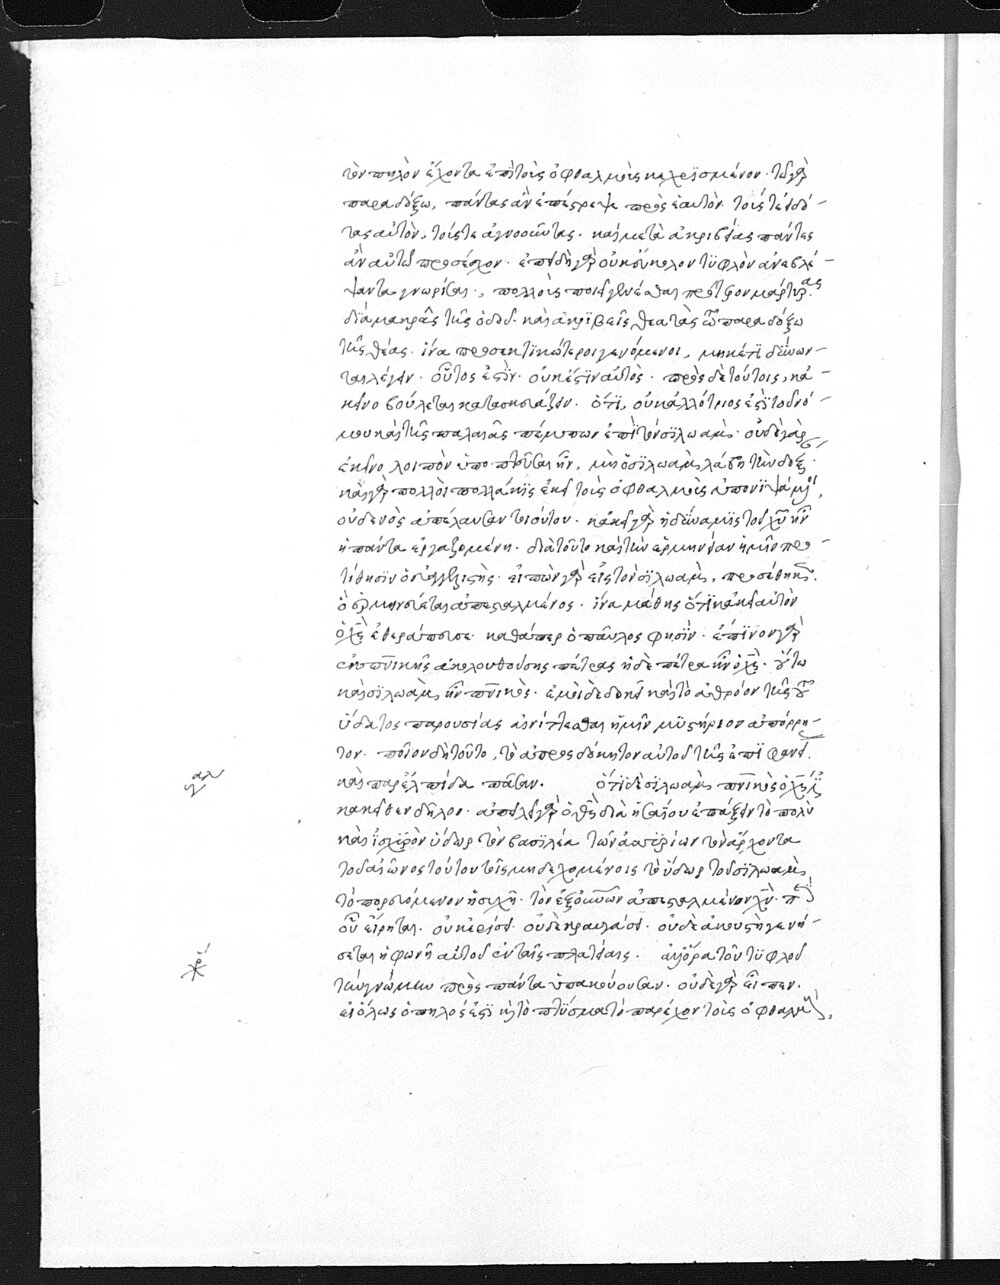 τὸν πηλὸν ἔχοντα ἐπὶ τοῖς ὀφθαλμοῖς κεχρισμένον· τῷ γὰρ
παραδόξω, πάντας ἂν ἐπέστρεψε πρὸς ἑαυτὸν τούς τε εἰδό-
τας αὐτὸν, τούς τε ἀγνοοῦντας. καὶ μετὰ ἀκριβείας πάντες
ἂν αὐτῶ προσέσχον· ἐπειδὴ γὰρ οὐκ εὔκολον τυφλὸν ἀναβλέ-
ψαντα γνωρίσαι, πολλοὺς ποιεῖ γενέσθαι πρότερον μάρτυρας
διὰ μακρᾶς τῆς ὁδοῦ· καὶ ἀκριβεῖς θεατὰς τῶ παραδόξω
τῆς θέας· ἵνα προσεκτικώτεροι γενόμενοι, μηκέτι δύνων-
ται λέγειν· οὗτος ἐστὶν· οὐκ ἔστιν αὐτὸς· πρὸς δὲ τούτοις, κἀ-
κεῖνο βούλεται κατασκευάζειν· ὅτι, οὐκ ἀλλότριος ἐστὶ τοῦ νό-
μου καὶ τῆς παλαιᾶς πέμπων ἐπὶ τὸν σιλωάμ· οὐδὲ γὰρ
ἐκεῖνο λοιπὸν ὑποπτεῦσαι ἦν, μὴ ὁ σιλωὰμ λάβῃ τὴν δόξ·
καὶ γὰρ πολλοὶ πολλάκις ἐκεῖ τοὺς ὀφθαλμοὺς ἀπονιψάμνοι,
οὐδενὸς ἀπέλαυσαν τοιούτου· κἀκεῖ γὰρ ἡ δύναμις τοῦ χυ ἦν
ἡ πάντα ἐργαζομένη· διὰ τοῦτο καὶ τὴν ἑρμηνείαν ἡμῖν προ-
τίθησιν ὁ εὐαγγελιστής· εἰπὼν γὰρ εἰς τὸν σιλωὰμ, προσέθηκεν·
ὃ ἑρμηνεύεται ἀπεσταλμένος· ἵνα μάθῃς ὅτι κἀκεῖ αὐτὸν
ὁ χς ἐθεράπευσε· καθάπερ ὁ παῦλος φησὶν· ἔπινον γὰρ
ἐκ πνικῆς ἀκολουθούσης πέτρας ἡ δὲ πέτρα ἦν ὁ χς· οὕτω
καὶ σιλωὰμ ἦν πνικὸς· ἐμοὶ δὲ δοκεῖ καὶ τὸ ἀθρόον τῆς τοῦ
ὕδατος παρουσίας αἰνίττεσθαι ἡμῖν μυστήριον ἀπόρρη-
τον· ποῖον δὴ τοῦτο, τὸ ἀπροσδόκητον αὐτοῦ τῆς ἐπιφανεί
καὶ παρἐλπίδα πᾶσαν. ὅτι δὲ σιλωὰμ πνικὸς ὁ χς
κἀκεῖθεν δῆλον· ἀπειλεῖ γὰρ ὁ θς διὰ ἡσαΐου ἐπάξειν τὸ πολὺ
καὶ ἰσχυρὸν ὕδωρ τὸν βασιλέα τῶν ἀσσυρίων τὸν ἄρχοντα
τοῦ αἰῶνος τούτου τοῖς μὴ δεχομένοις τὸ ὕδωρ τοῦ σιλωὰμ
τὸ πορευόμενον ἡσυχῆ· τὸν ἐξ οὐνῶν ἀπεσταλμένον χν· π
οὗ εἴρηται· οὐκ ἐρίσει οὐδὲ κραυγάσει· οὐδὲ ἀκουστὴ γενή-
σεται ἡ φωνὴ αὐτοῦ ἐν ταῖς πλατείαις. ὅρα τοῦ τυφλοῦ
τὴν γνώμην πρὸς πάντα ὑπακούουσαν· οὐδὲ γὰρ εἶπεν·
εἰ ὅλως ὁ πηλός ἐστι ἢ τὸ πτύσμα τὸ παρέχον τοῖς ὀφθαλμ